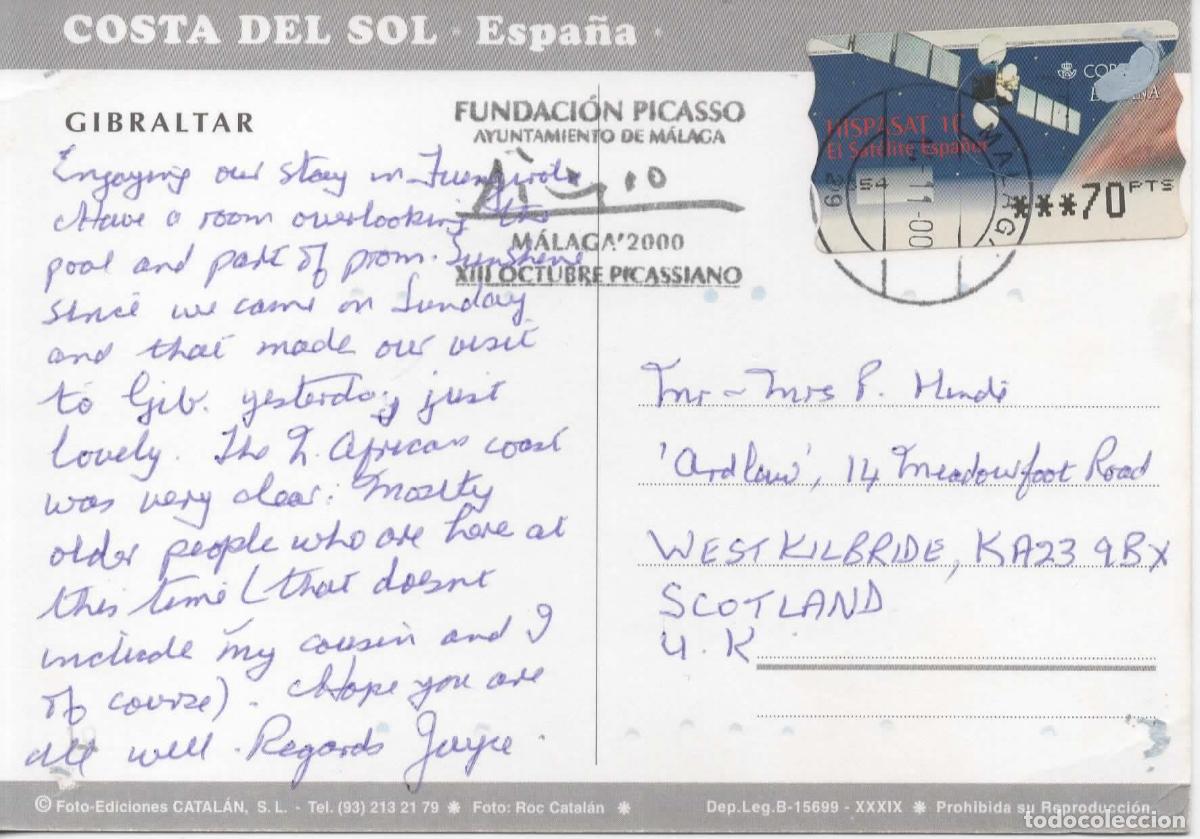 COSTA DEL SOL · España ·
GIBRALTAR
Enjoying our stay in Fuengirola
Have a room overlooking the
pool and part of prom. Sunshine
since we came on Sunday
and that made our visit
to Gib. yesterday just
lovely. The N. African coast
was very clear. Mostly
older people who are here at
this time (that doesnt
include my cousin and I
of course). Hope you are
all well. Regards Joyce.
FUNDACIÓN PICASSO
AYUNTAMIENTO DE MÁLAGA
MÁLAGA'2000
XIII OCTUBRE PICASSIANO
CORREOS
ESPAÑA
HISPASAT 1C
El Satélite Español
***70 PTS
MALAGA
29
-11-00
Mr ~ Mrs P.
'Ardlaw', 14 Meadowfoot Road
WEST KILBRIDE, KA23 9BX
SCOTLAND
U.K
© Foto-Ediciones CATALÁN, S. L. - Tel. (93) 213 21 79 ✷ Foto: Roc Catalán ✷
Dep.Leg.B-15699 - XXXIX ✷ Prohibida su Reproducción.
todocoleccion